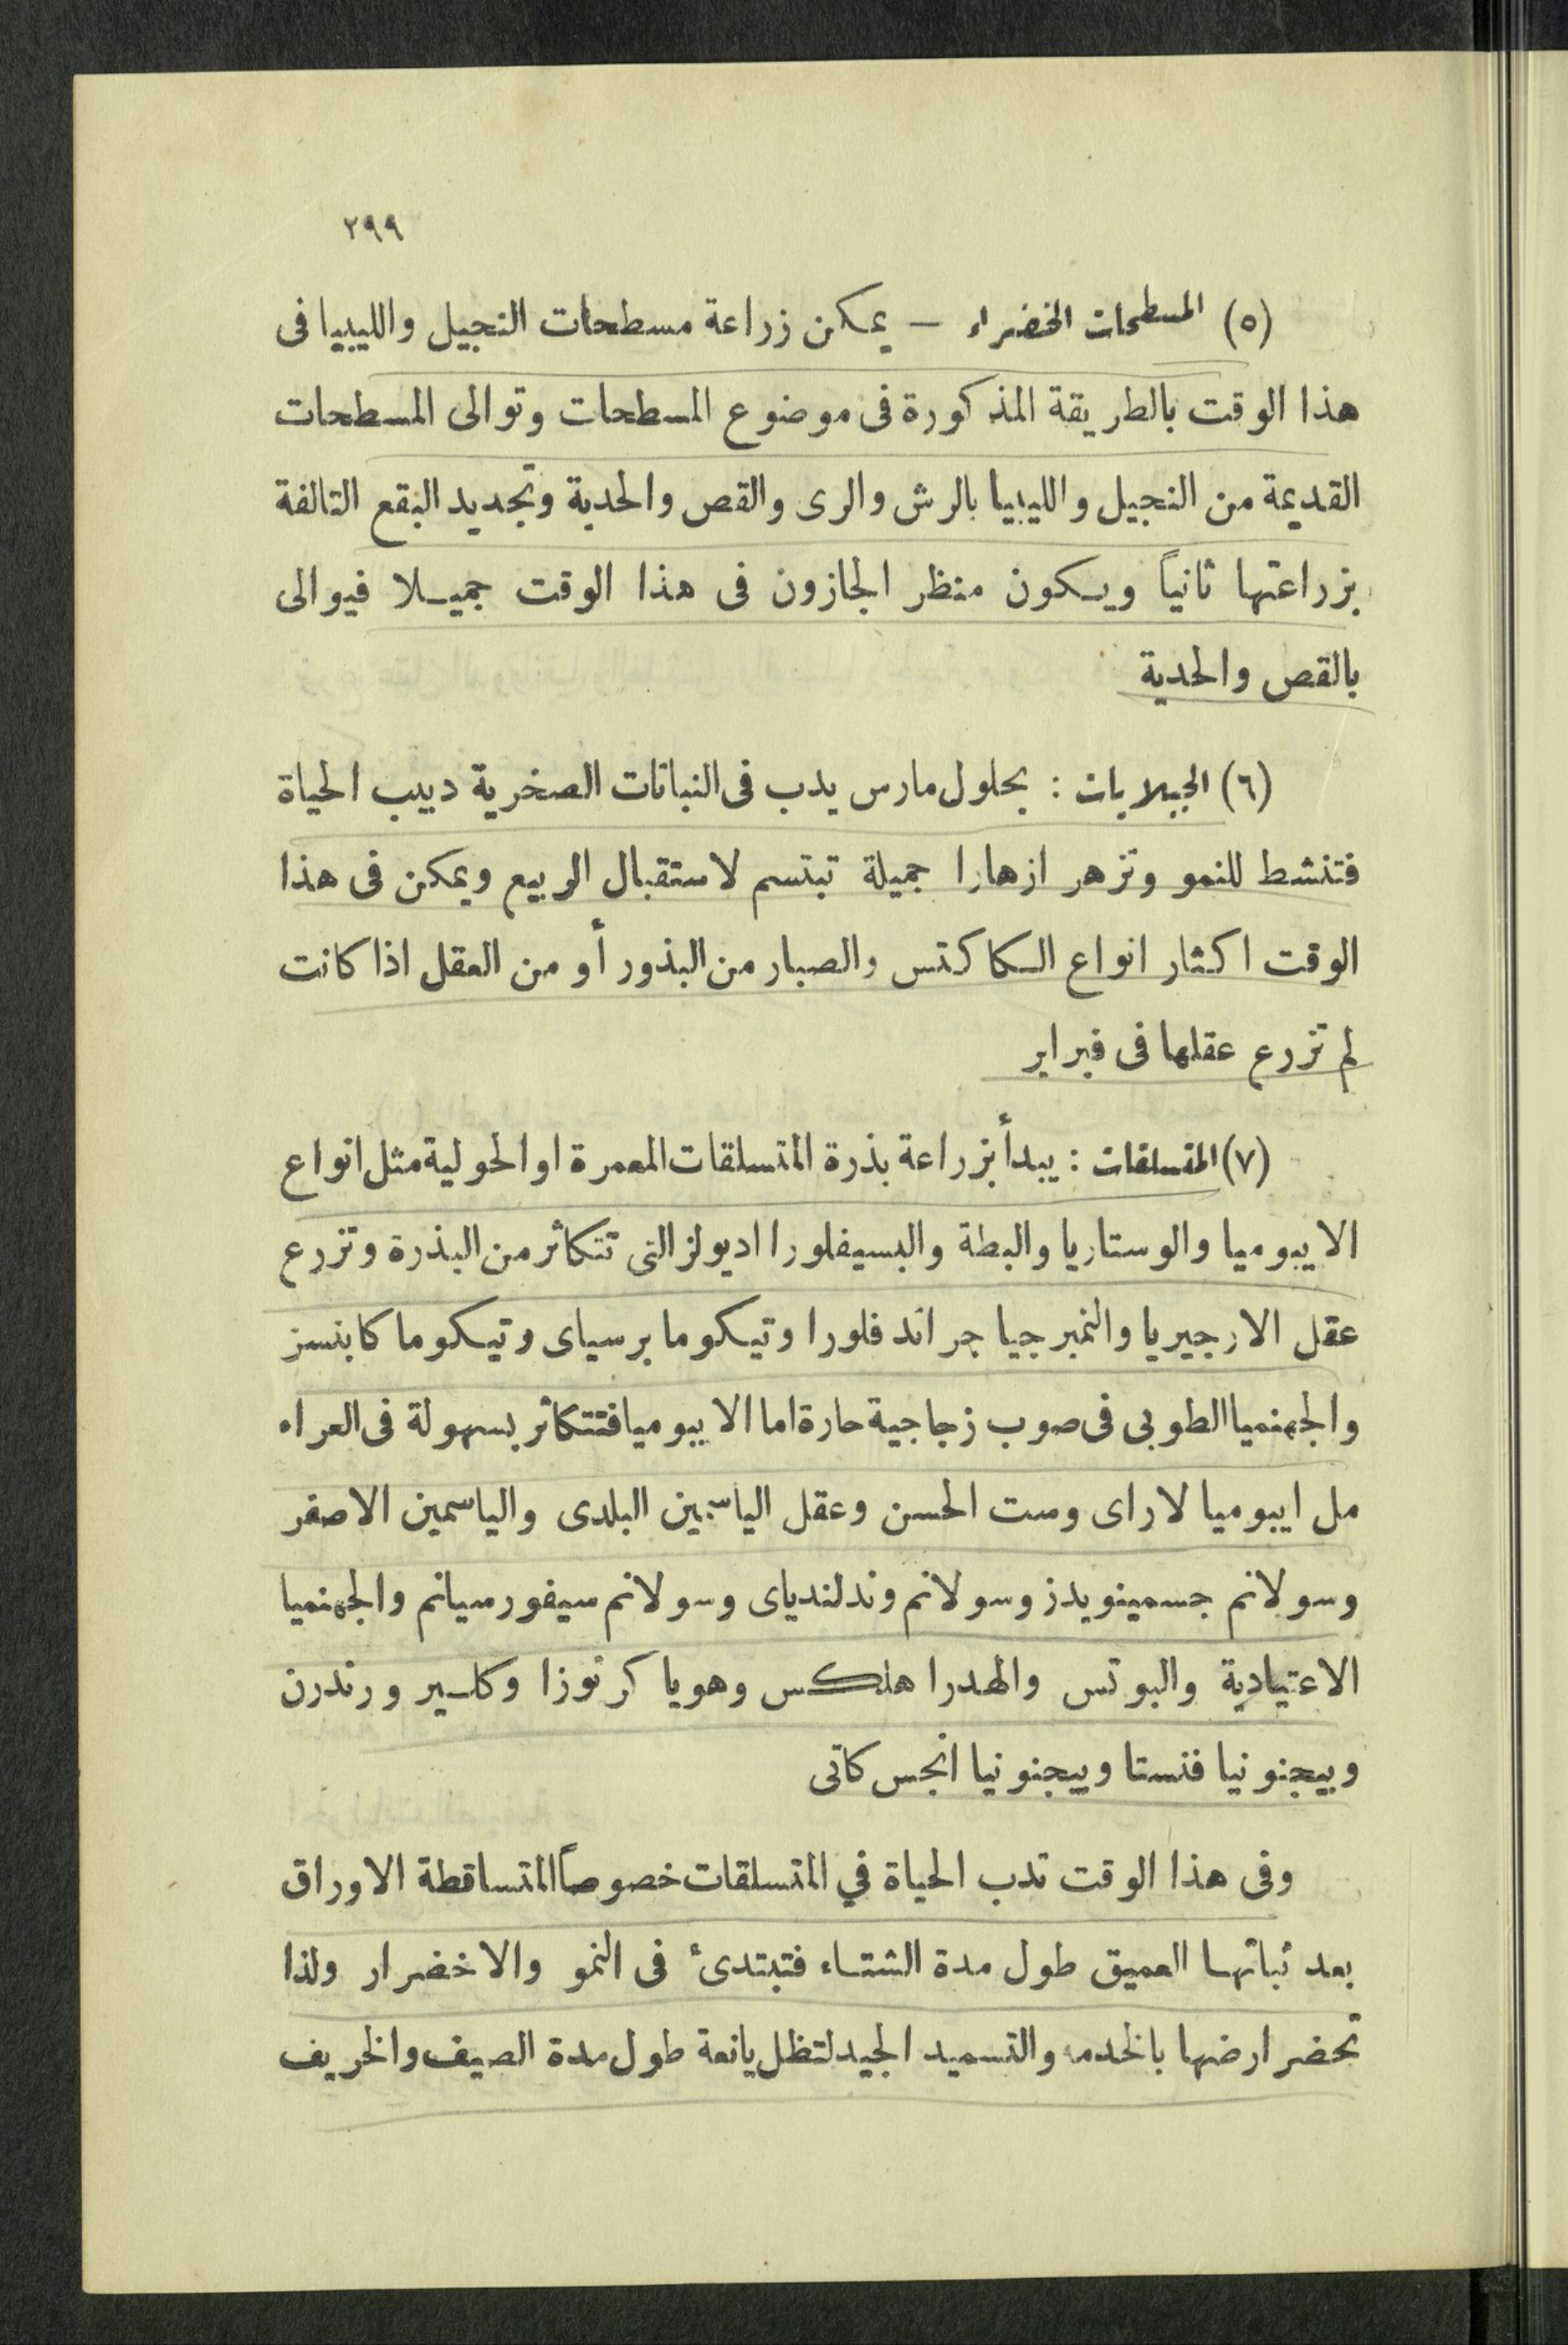 ٢٩٩
(٥) المسطحات الخضراء — يمكن زراعة مسطحات النجيل والليبيا فى
هذا الوقت بالطريقة المذكورة فى موضوع المسطحات وتوالى المسطحات
القديمة من النجيل والليبيا بالرش والرى والقص والحدية وتجديد البقع التالفة
بزراعتها ثانياً ويكون منظر الجازون فى هذا الوقت جميلا فيوالى
بالقص والحدية
(٦) الجبلايات : بحلول مارس يدب فى النباتات الصخرية دبيب الحياة
فتنشط للنمو وتزهر ازهارا جميلة تبتسم لاستقبال الربيع ويمكن فى هذا
الوقت اكثار انواع الكاكتس والصبار من البذور أو من العقل اذا كانت
لم تزرع عقلها فى فبراير
(٧) المتسلقات : يبدأ بزراعة بذرة المتسلقات المعمرة او الحولية مثل انواع
الايبوميا والوستاريا والبطة والبسيفلورا اديولز التى تتكاثر من البذرة وتزرع
عقل الارجيريا والتمبرجيا جراند فلورا وتيكوما برسياى وتيكوما كابنسز
والجهنميا الطوبى فى صوب زجاجية حارة اما الايبوميا فتتكاثر بسهولة فى العراء
مل ايبوميا لاراى وست الحسن وعقل الياسمين البلدى والياسمين الاصفر
وسولانم جسمينويدز وسولانم وندلندياى وسولانم سيفورسيانم والجهنميا
الاعتيادية والبوتس والهدرا هلكس وهويا كرنوزا وكلير ورندرن
وبيجنونيا فنستا وبيجنونيا انجس كاتى
وفى هذا الوقت تدب الحياة في المتسلقات خصوصاً المتساقطة الاوراق
بعد نباتها العميق طول مدة الشتاء فتبتدئ فى النمو والاخضرار ولذا
تحضر ارضها بالخدمه والتسميد الجيد لتظل يانعة طول مدة الصيف والخريف